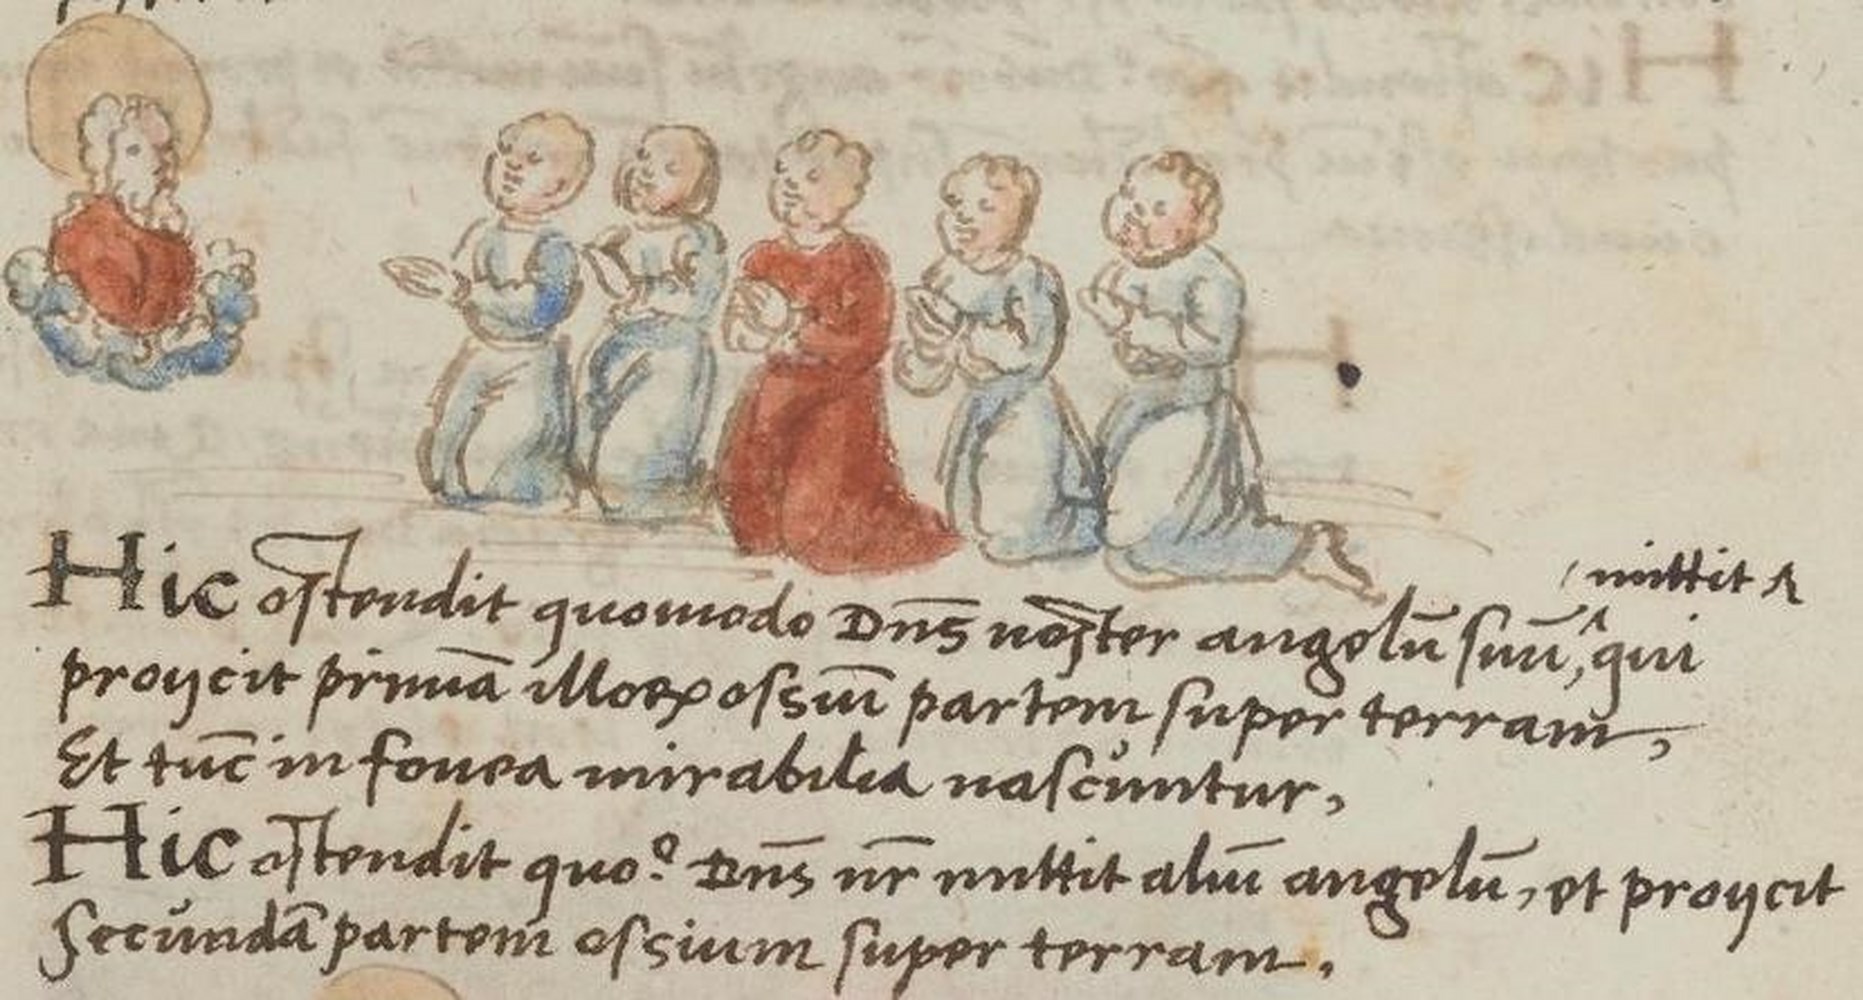 mittit
Hic ostendit quomodo Dn̄s noster angelū suū, qui
proijcit primā illoꝝ ossiū partem super terram,
Et tūc in fouea mirabilia nascuntur,
Hic ostendit quo.º Dn̄s nr̄ mittit aliū angelū, et proijcit
secundā partem ossium super terram.